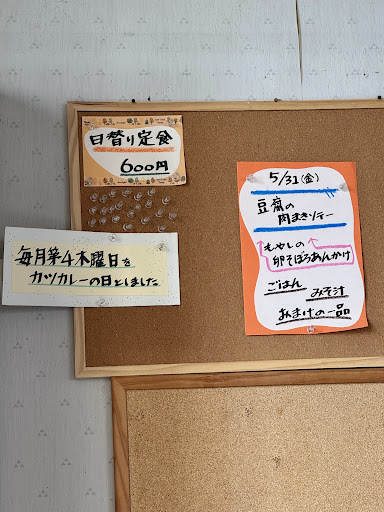 日替り定食
600円
毎月第4木曜日を
カツカレーの日としました
5/31(金)
豆腐の
肉まきソテー
もやしの
卵そぼろあんかけ
ごはん
みそ汁
おまけの一品